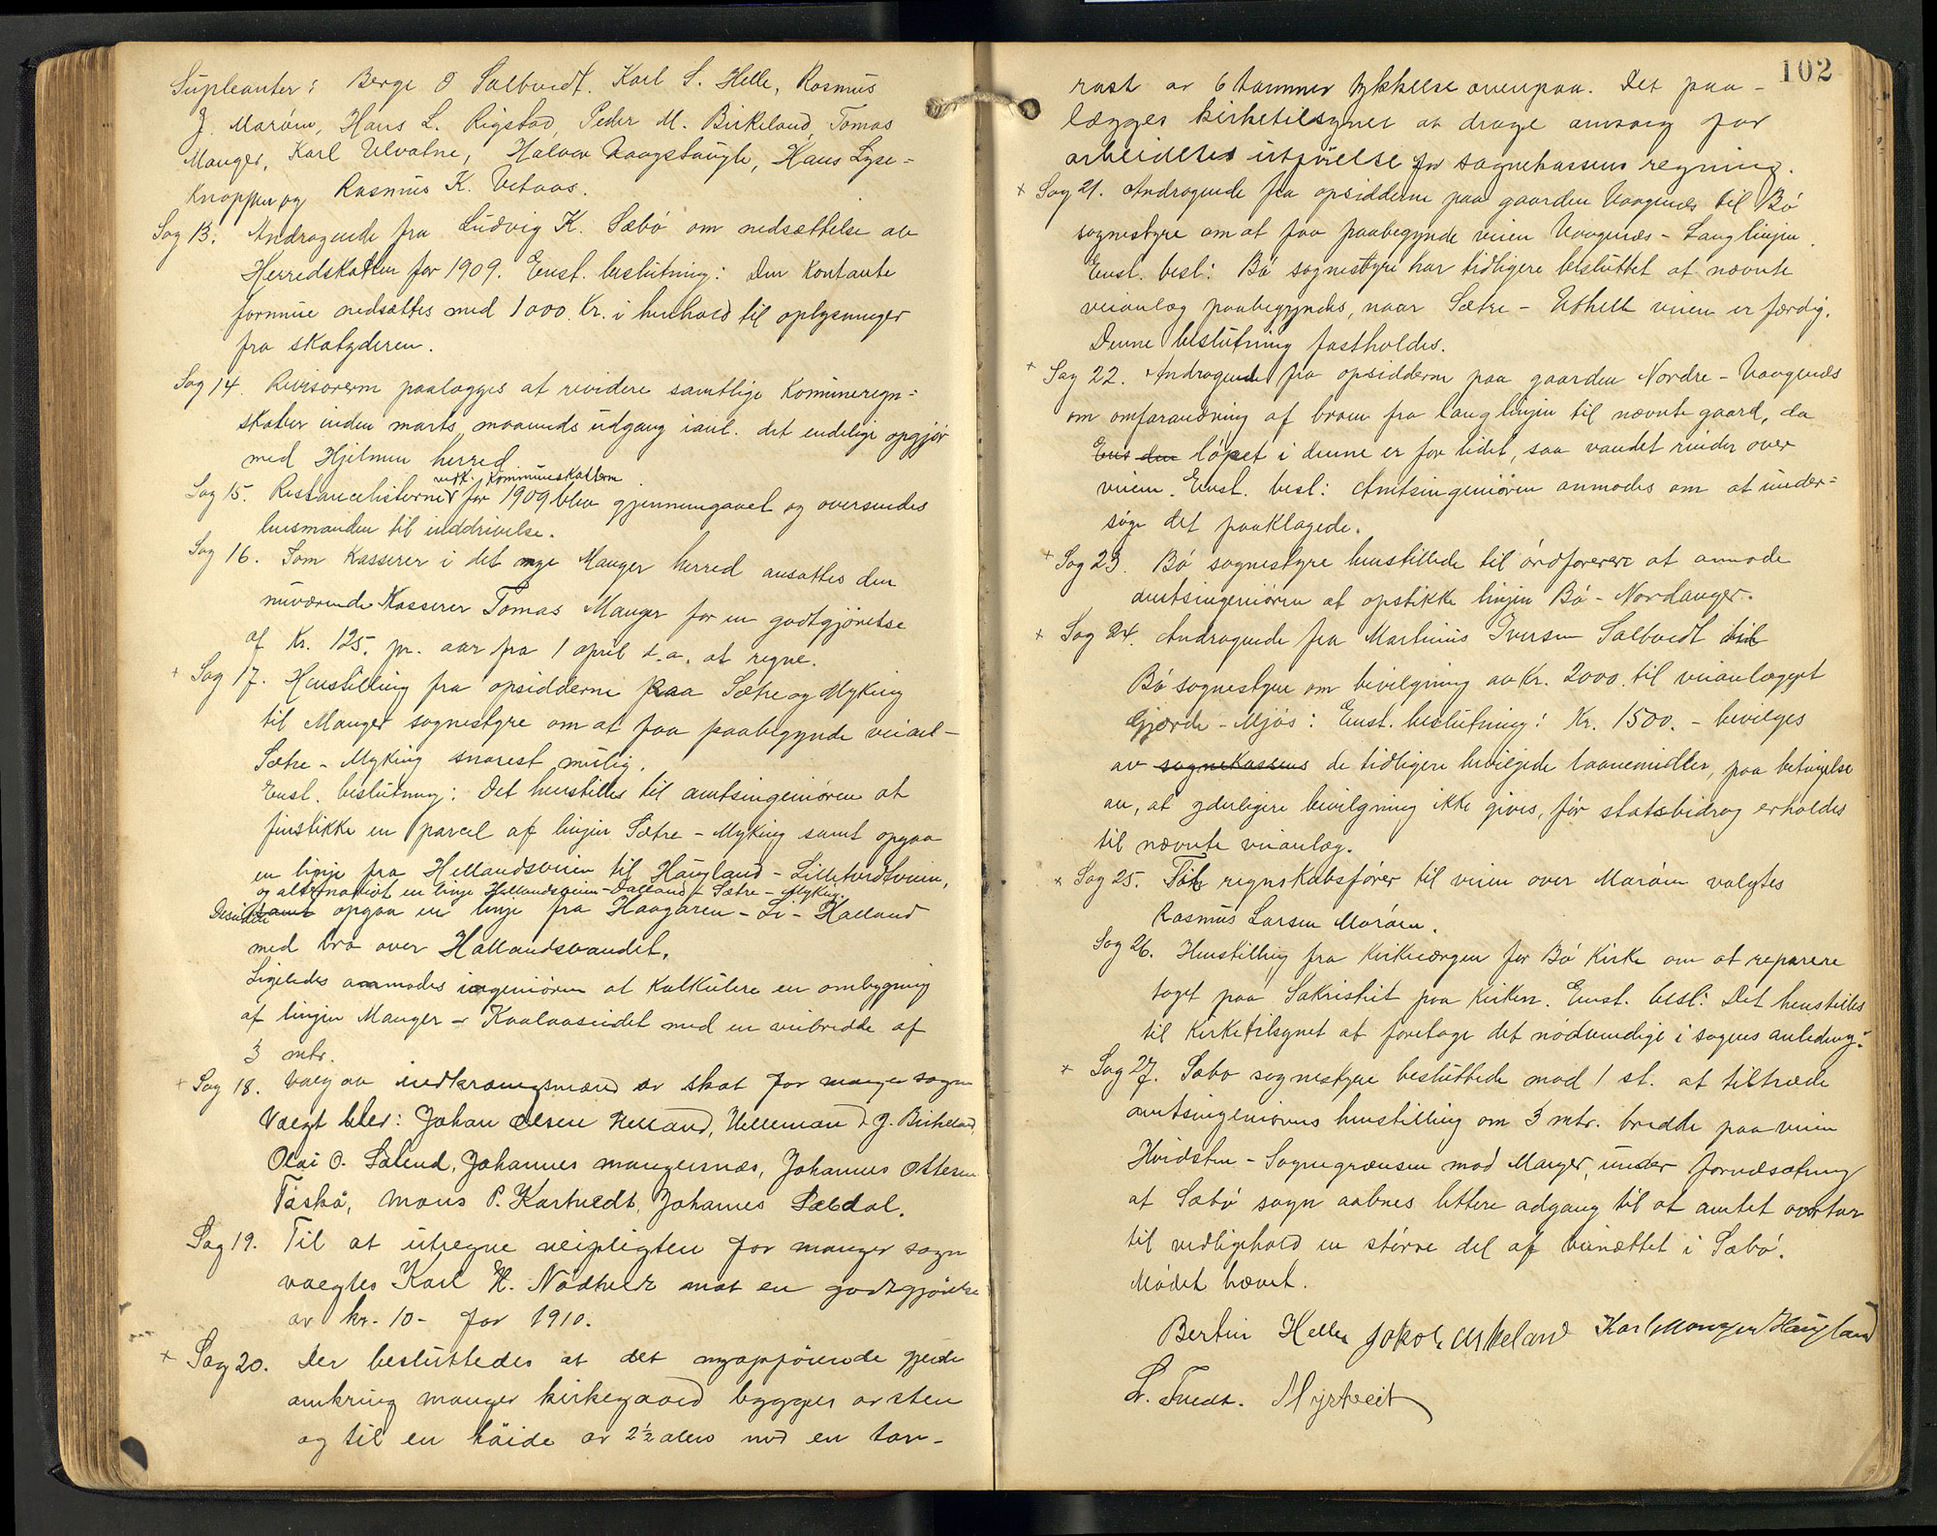 Supleanter: Berge O Solbredt. Karl S. Helle, Rasmus
J. Marøm, Hans L. Rigstad, Peder M. Birkeland, Tomas
Manger, Karl Ulvatne, Halvor Haagstaugh, Hans Lyse-
knappen og Rasmus K. Vetaas.
Sag 13. Andragende fra Ludvig K. Sæbø om nedsættelse av
Herredskatten for 1909. Enst. beslutning: Den kontante
formue nedsættes med 1000 kr. i henhold til oplysninger
fra skatyderen.
Sag 14. Revisorerne paalægges at revidere samtlige Kommuneregn=
skaber inden marts maaneds udgang iaul. det endelige opgjør
med Hjelmen herred
vedk. Kommuneskatterne
Sag 15. Restancelisterne for 1909 blev gjennemgaaet og oversendes
lensmanden til inddrivelse.
Sag 16. Som Kasserer i det nye Manger herred ansattes den
nuværende Kasserer Tomas Manger for en godtgjörelse
af Kr. 125. pr. aar fra 1 april d.a. at regne.
+ Sag 17. Henstilling fra opsidderne paa Sætre og Myking
til Manger sognestyre om at faa paabegynde veianl-
Sætre - Myking snarest mulig.
Enst. beslutning: Det henstilles til amtsingeniøren at
finstikke en parcel af linjen Sætre - Myking samt opgaa
en linje fra Hellandsveien til Haugland - Lilletvedtveien,
og alternativt en linje Hellandsveien - Dalland - Sætre - Myking
Desuden samt opgaa en linje fra Haagaren - Li - Halland
med bro over Hallandsvandet.
Ligeledes anmodes ingeniøren at kalkulere en ombygning
af linjen Manger - Kvalvaasundet med en veibredde af
3 mtr.
+ Sag 18. Valg av indkrævningsmænd av skat for manger sogn
Valgt blev: Johan Olsen Helland, Helleman J. Birkeland,
Olai O. Sælend, Johannes mangersnæs, Johannes Ottesen
Toska, Mons P. Kartveit, Johannes Sæbdal.
Sag 19. Til at utregne veipligten for manger sogn
valgtes Karl H. Nødtvedt mot en godtgjörelse
av kr. 10- for 1910.
+ Sag 20. Der besluttedes at det nyopførende gjerde
omkring manger kirkegaard bygges av sten
og til en høide av 2½ alen med en tor-
102
rast av 6 tommer tykkelse ovenpaa. Det paa-
lægges kirketilsynet at drage omsorg for
arbeidets utførelse for sognekassens regning.
+ Sag 21. Andragende fra opsidderne paa gaarden Vaagenes til Bø
sognestyre om at faa paabegynde veien Vaagenæs - Langlinjen.
Enst. besl: Bø sognestyre har tidligere besluttet at nævnte
veianlæg paabegyndes, naar Sætre - Uthelle veien er færdig.
Denne beslutning fastholdes.
+ Sag 22. Andragende fra opsidderne paa gaarden Nordre - Vaagenæs
om omforandring af broen fra langlinjen til nævnte gaard, da
Ens den løpet i denne er for lidet, saa vandet rinder over
veien. Enst. besl: Amtsingeniøren anmodes om at under=
søge det paaklagede.
+ Sag 23. Bø sognestyre henstillede til ordføreren at anmode
amtsingeniøren at opstikke linjen Bø - Nordanger.
+ Sag 24. Andragende fra Martinus Iversen Solbredt til
Bø sognestyre om bevilgning av Kr. 2000. til veianlægget
Gjærde - Mjøs: Enst. beslutning: Kr. 1500. - bevilges
av sognekassens de tidligere bevilgede laanemidler, paa betingelse
av, at yderligere bevilgning ikke gives, før statsbidrag erholdes
til nævnte veianlæg.
+ Sag 25. Til regnskabsfører til veien over Marøen valgtes
Rasmus Larsen Marøen.
Sag 26. Henstilling fra Kirkeværgen for Bø Kirke om at reparere
taget paa Sakristiet paa Kirken. Enst. besl: Det henstilles
til Kirketilsynet at foretage det nødvendige i sagens anledning.
+ Sag 27. Sæbø sognestyre besluttede mod 1 st. at tiltræde
amtsingeniørens henstilling om 3 mtr. bredde paa veien
Hvidsten - Sognegrænsen mod Manger, under forudsætning
at Sæbø sogn aabnes lettere adgang til at amtet overtar
til vedligehold en større del af veinættet i Sæbø.
Mødet hævet.
Bertin Helle Jakob Askeland Karl Manger Haugland
L. Tvedt. Myrtveit